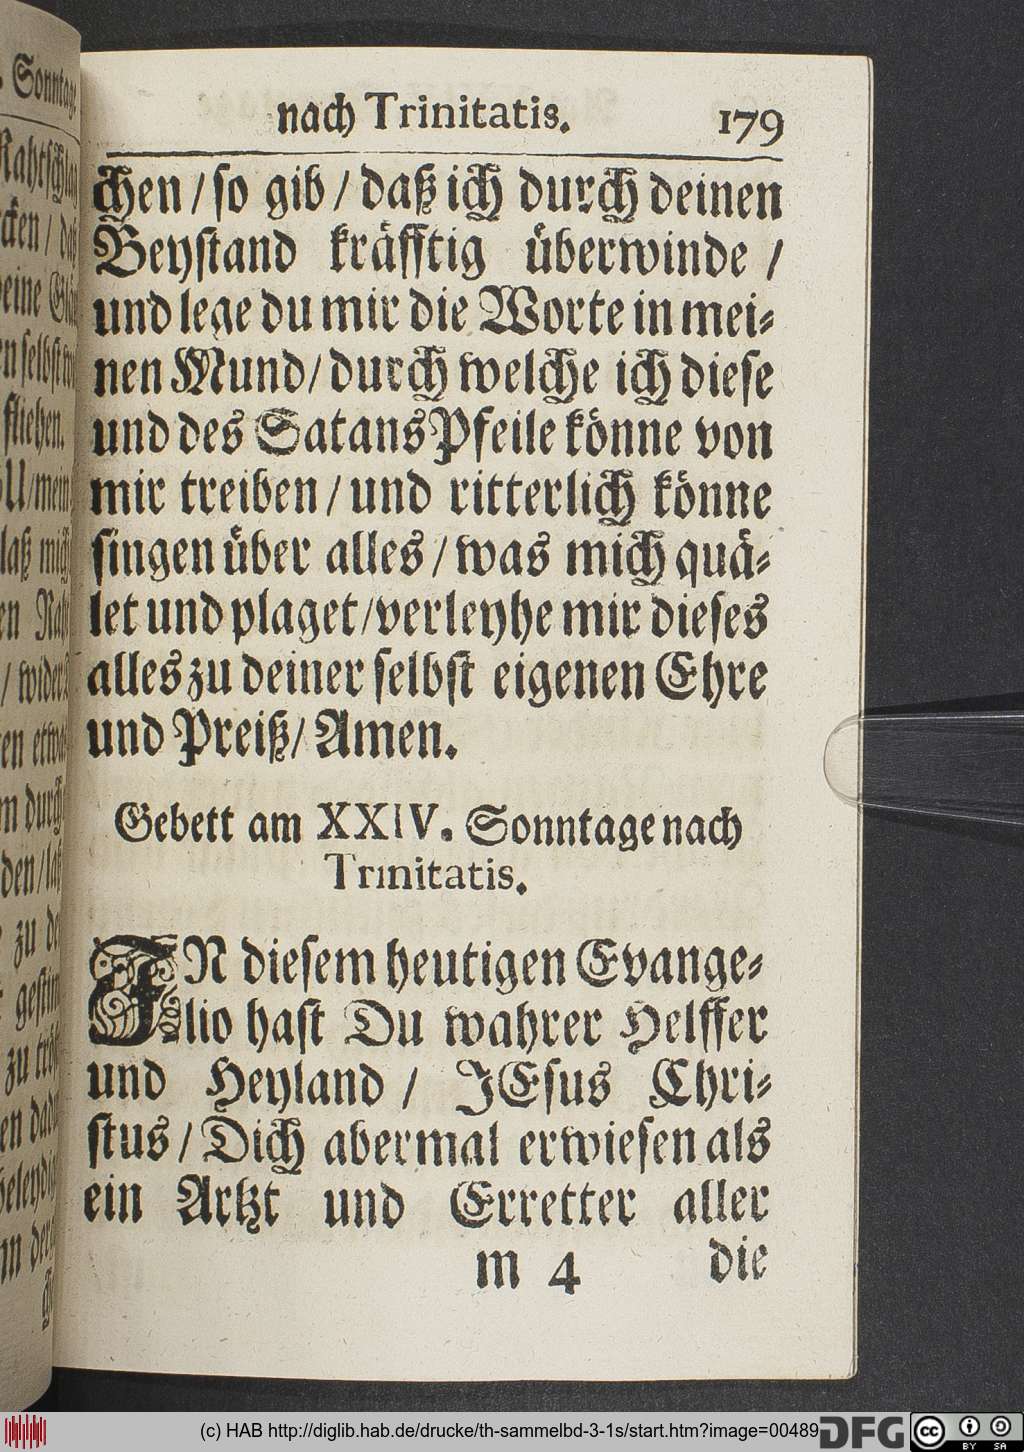 nach Trinitatis. 179
chen / so gib / daß ich durch deinen
Beystand kräfftig überwinde /
und lege du mir die Worte in mei⸗
nen Mund / durch welche ich diese
und des Satans Pfeile könne von
mir treiben / und ritterlich könne
singen über alles / was mich quä⸗
let und plaget / verleyhe mir dieses
alles zu deiner selbst eigenen Ehre
und Preiß / Amen.
Gebett am XXIV. Sonntage nach
Trinitatis.
IN diesem heutigen Evange⸗
lio hast Du wahrer Helffer
und Heyland / JEsus Chri⸗
stus / Dich abermal erwiesen als
ein Artzt und Erretter aller
m 4 die
(c) HAB http://diglib.hab.de/drucke/th-sammelbd-3-1s/start.htm?image=00489
DFG
cc BY SA